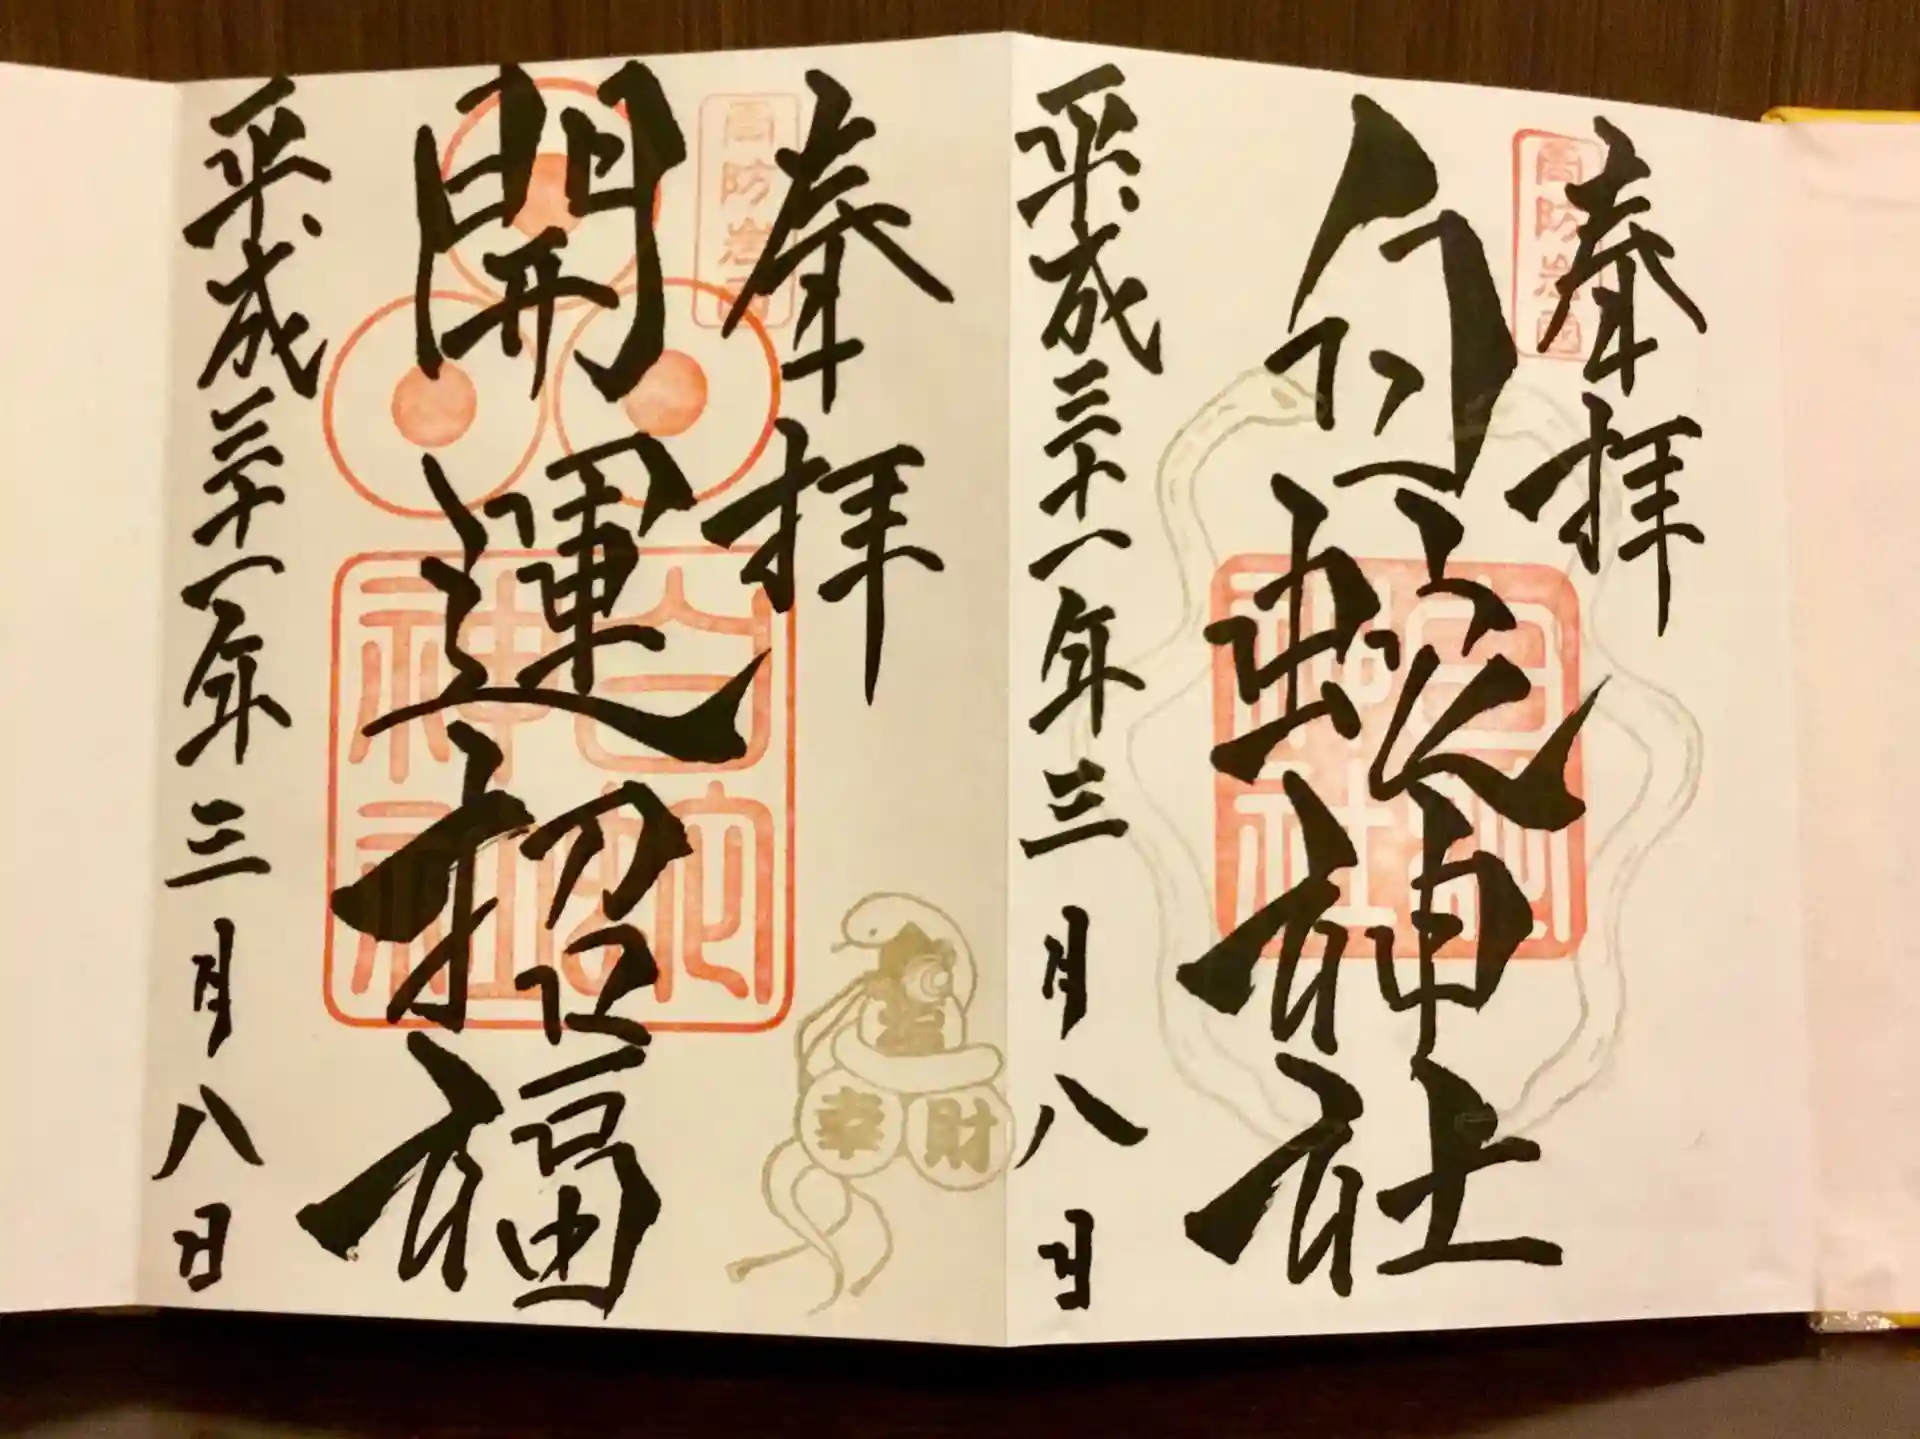 奉拝
周防岩国
白蛇神社
白蛇
神社
平成三十一年三月八日
奉拝
周防岩国
開運招福
白蛇
神社
幸
財
平成三十一年三月八日